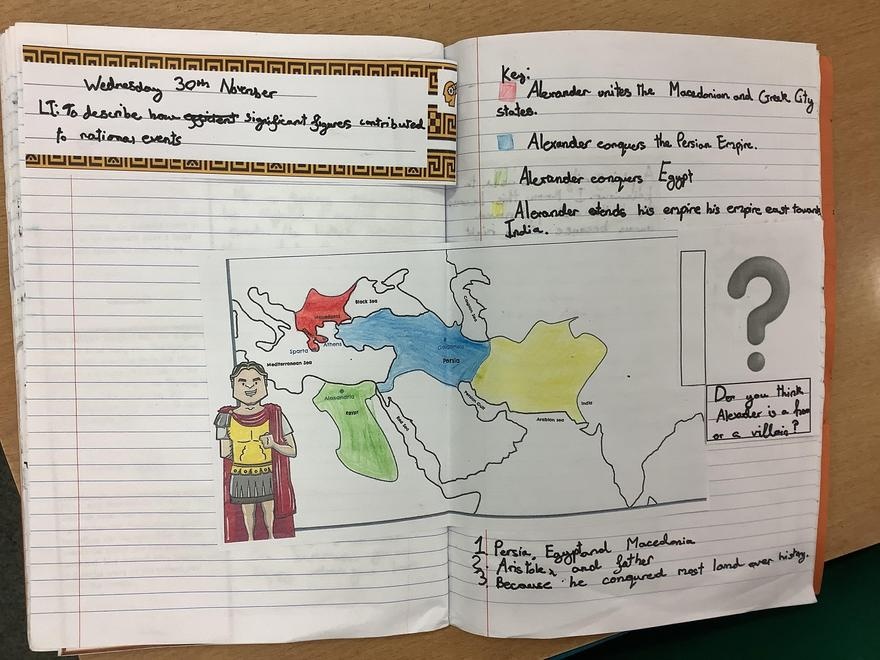 Wednesday 30th November
LI: To describe how efficient significant figures contributed
to national events
Key:
Alexander unites the Macedonian and Greek City
states.
Alexander conquers the Persian Empire.
Alexander conquers Egypt
Alexander etends his empire his empire east towards
India.
Black Sea
Caspian Sea
Macedonia
Sparta
Athens
Gaugamela
Persia
Mediterranean Sea
Alexandria
Egypt
Red Sea
Arabian Sea
India
?
Do you think
Alexander is a hero
or a villain?
1 Persia, Egypt and Macedonia
2. and father
3. Because he conquered most land over history.